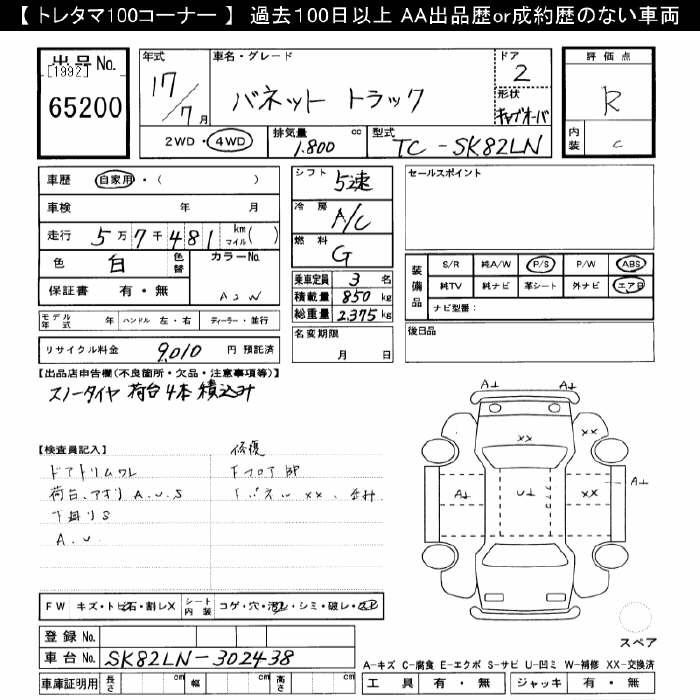 【 トレタマ100コーナー 】 過去100日以上 AA出品歴or成約歴のない車両
出品 No.
[1992]
65200
年式 17/7月
車名・グレード
バネット トラック
ドア 2
形状 キャブオーバ
2WD・4WD
排気量 1.800 cc
型式 TC - SK82LN
評価点
R
内装 C
車歴 自家用・( )
車検 年 月
走行 5万7千481 km マイル( )
色 白 色替 カラーNo.
A2W
保証書 有・無
モデル年式 年 ハンドル 左・右 ディーラー・並行
リサイクル料金 9,010 円 預託済
シフト 5速
冷房 A/C
燃料 G
乗車定員 3 名
積載量 850 kg
総重量 2.375 kg
名変期限
月 日
セールスポイント
装備品
S/R 純A/W P/S P/W ABS
純TV 純ナビ 革シート 外ナビ エアB
ナビ型番:
後日品
【出品店申告欄(不良箇所・欠品・注意事項等)】
スノータイヤ 荷台4本積込み
【検査員記入】
ドアトリムワレ
荷台、アオリ A.U.S
下廻りS
A.U.
修復
Fフロア部
XX
A⊥ A⊥
XX XX
A⊥ U⊥ XX A⊥
FW キズ・トビ石・割レX
シート内装 コゲ・穴・汚レ・シミ・破レ・
スペア
登録 No.
車台 No. SK82LN-302438
車庫証明用 長さ cm 幅 cm 高さ cm
A-キズ C-腐食 E-エクボ S-サビ U-凹ミ W-補修 XX-交換済
工具 有・無 ジャッキ 有・無